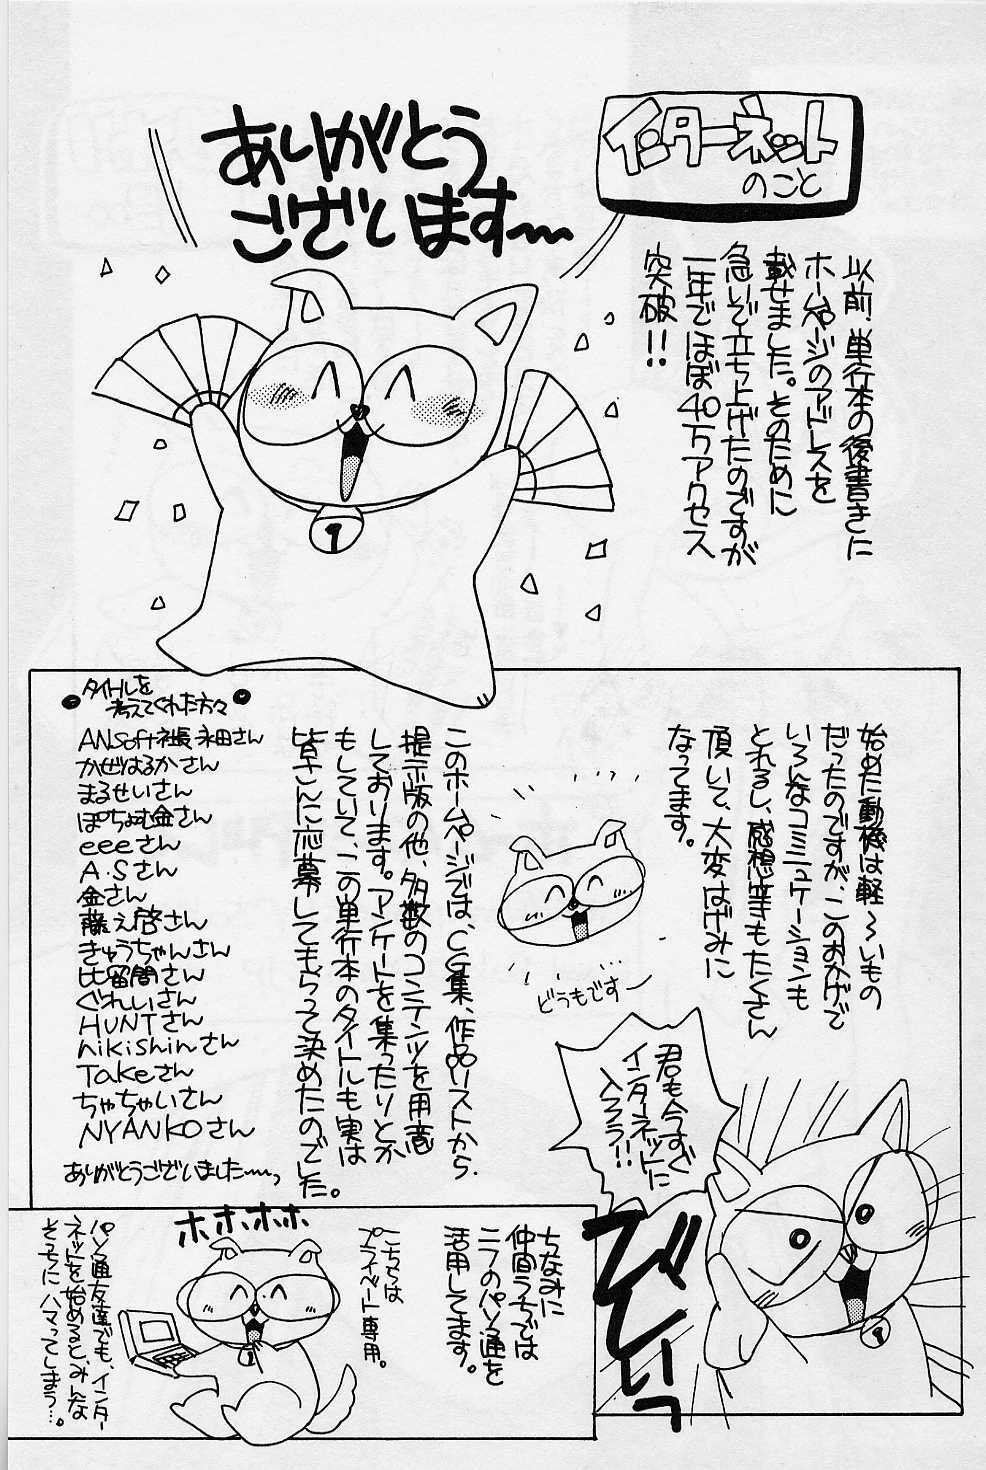 インターネット
のこと
ありがとう
ございます〜
以前、単行本の後書きに
ホームページのアドレスを
載せました。そのために
急いで立ち上げたのですが
一年でほぼ40万アクセス
突破!!
始めた動機は軽〜いもの
だったのですが、このおかげで
いろんなコミニュケーションも
とれるし、感想等もたくさん
頂いて、大変はげみに
なってます。
どうもですー
このホームページでは、CG集、作品リストから
提示版の他、多数のコンテンツを用意
しております。アンケートを集ったりとか
もしていて、この単行本のタイトルも実は
皆さんに応募してもらって決めたのでした。
タイトルを
考えてくれた方々
ANSoft社長永田さん
かぜはるかさん
まるせいさん
ぽちょむ金さん
eeeさん
A.Sさん
金さん
藤え啓さん
きゅうちゃんさん
比留間さん
ぐれいさん
HUNTさん
hikishinさん
Takeさん
ちゃちゃいさん
NYANKOさん
ありがとうございました〜っ
君も今すぐ
インターネットに
入ろう!!
でいっ
ちなみに
仲間うちでは
ニフのパソ通を
活用してます。
こちらは
プライベート専用。
ホホホホ
パソ通友達でも、インター
ネットを始めると、みんな
そっちにハマってしまう…。